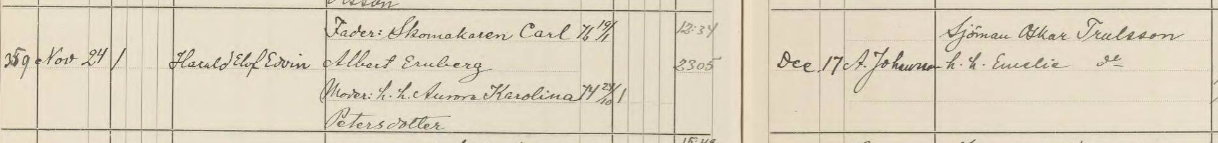 Fader: Skomakaren Carl 76 19/1 12:34 Sjöman Oskar Trulsson
359 Nov 24 / Harald Elof Edvin Albert Ernberg 2305 Dec. 17 A. Johansson h. h. Emelie do
Moder: h. h. Aurora Karolina 74 24/10 1
Petersdotter